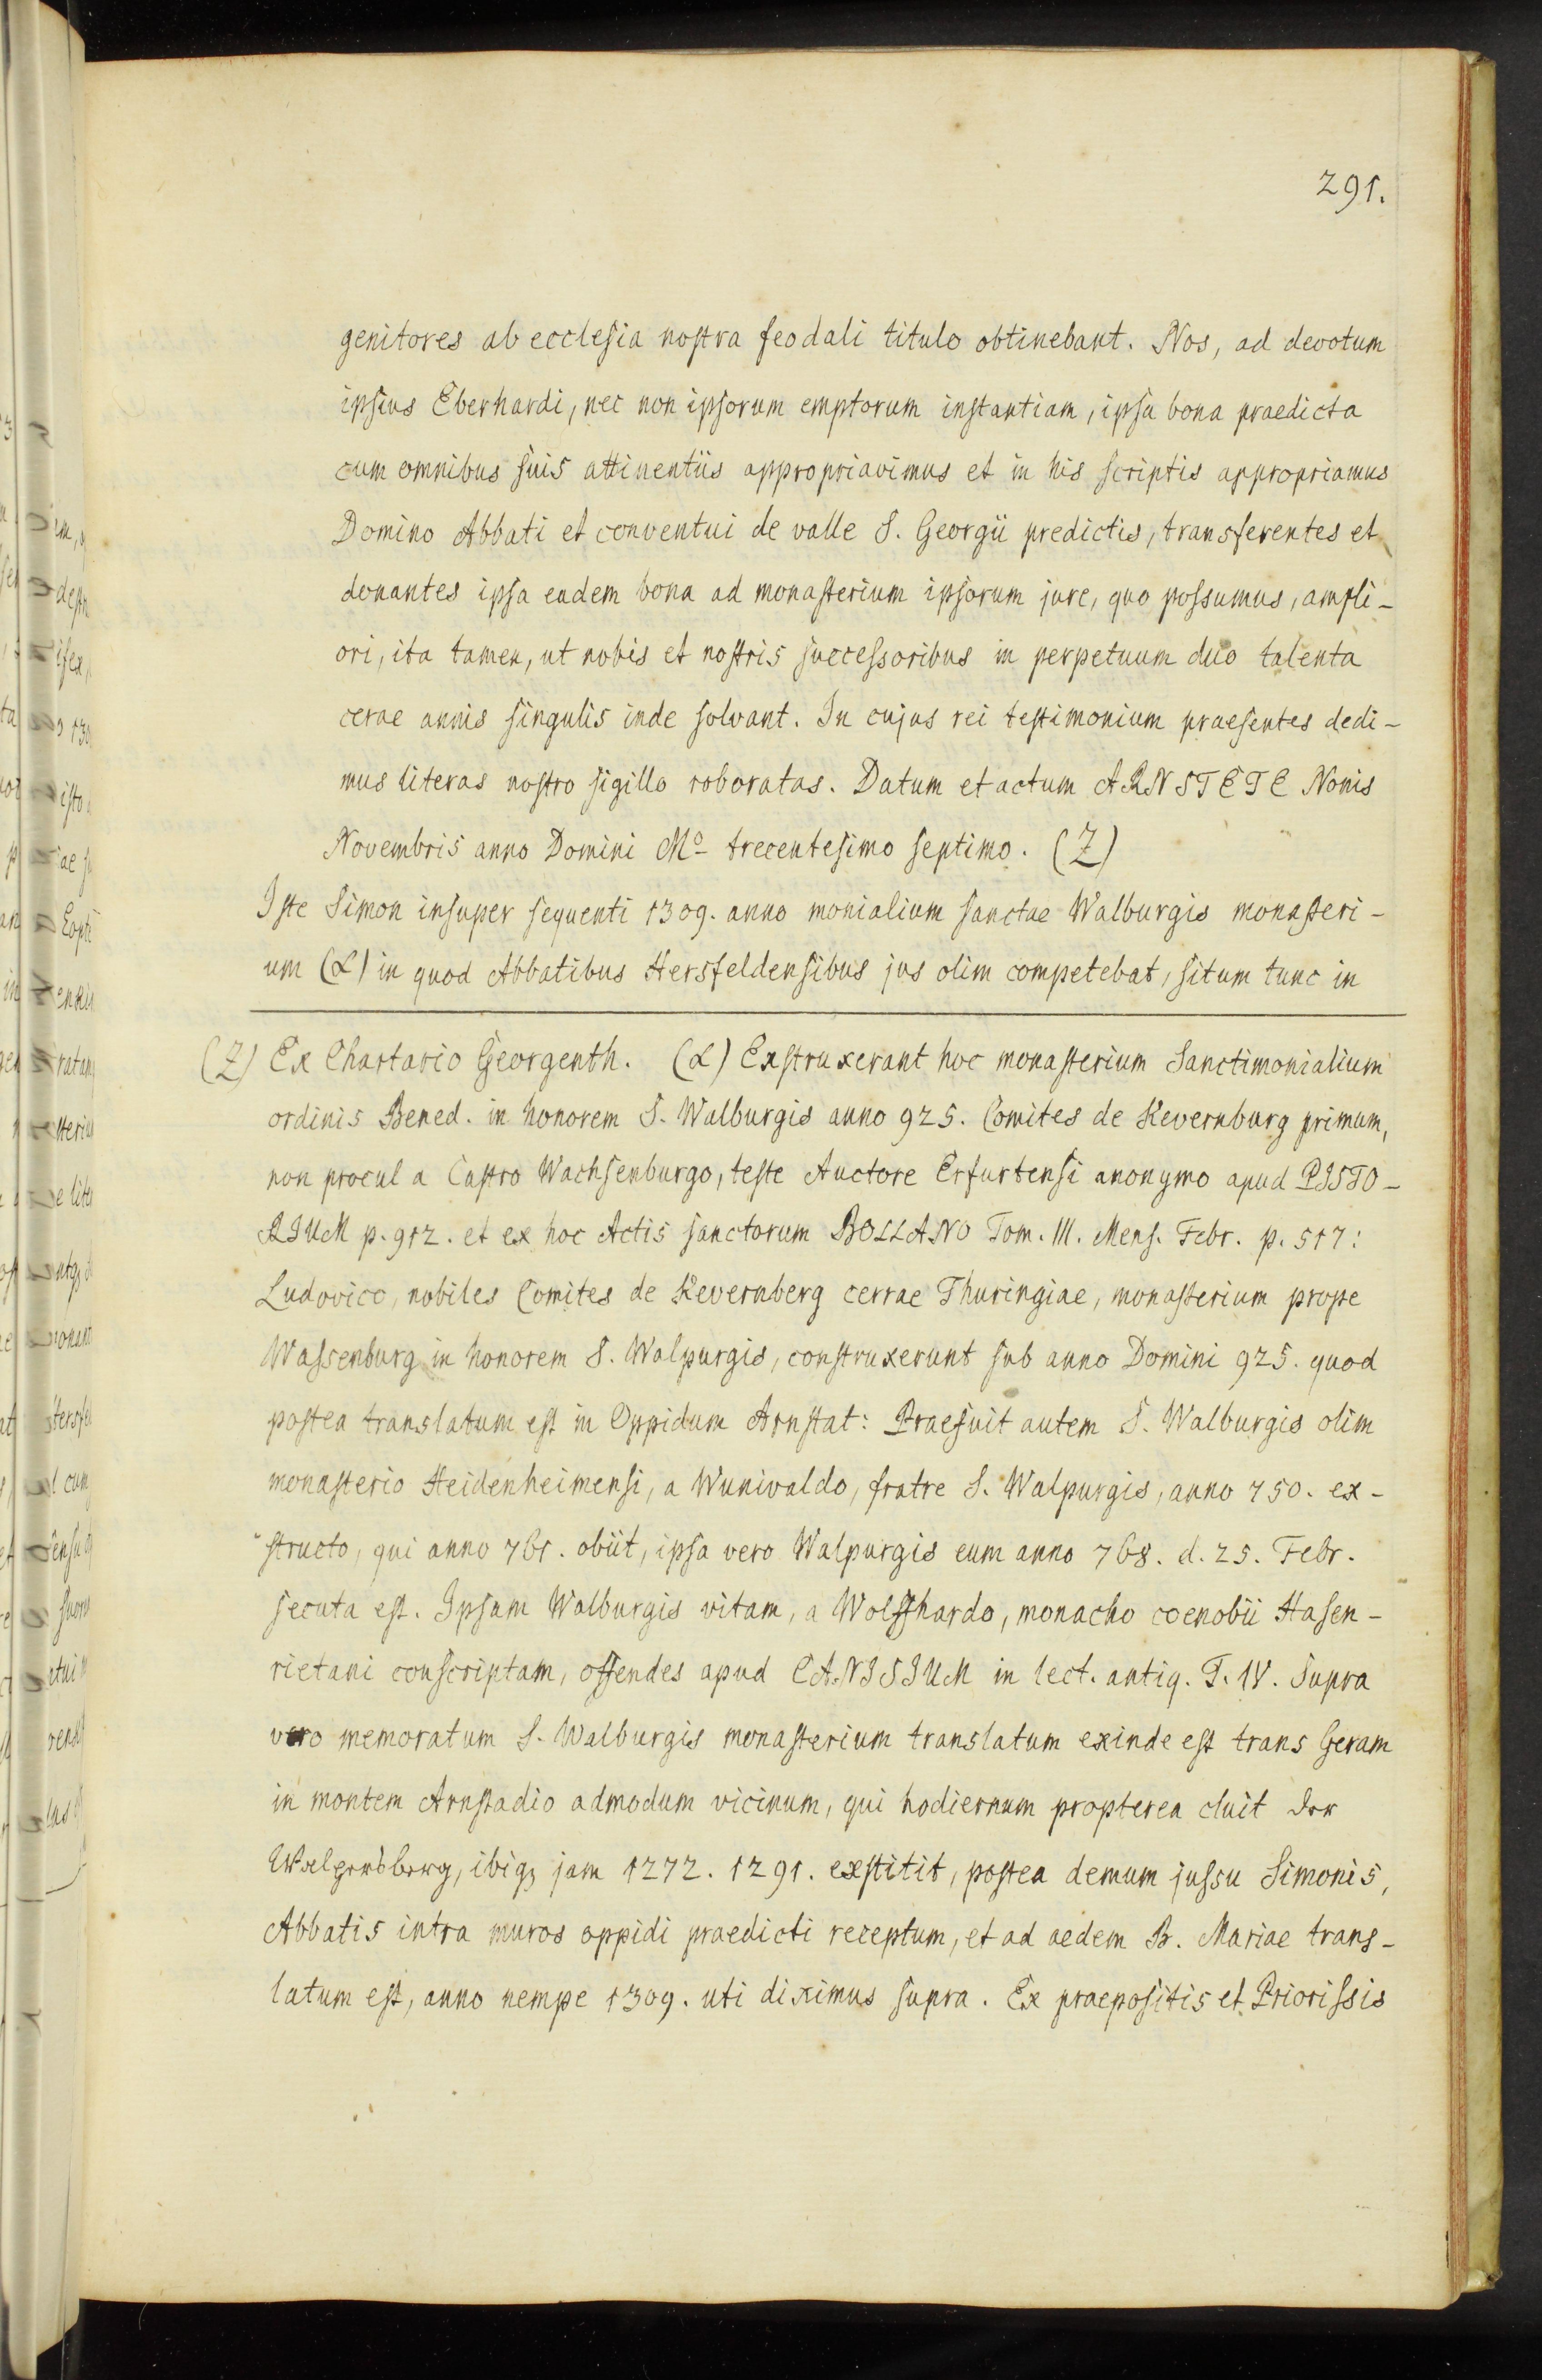 291.
genitores ab ecclesia nostra feodali titulo obtinebant. Nos, ad devotum
ipsius Eberhardi, nec non ipsorum emptorum instantiam, ipsa bona praedicta
cum omnibus suis attinentiis appropriavimus et in his scriptis appropriamus
Domino Abbati et conventui de valle S. Georgii predictis, transferentes et
donantes ipsa eadem bona ad monasterium ipsorum jure, quo possumus, ampli-
ori, ita tamen, ut nobis et nostris successoribus in perpetuum duo talenta
cerae annis singulis inde solvant. In cujus rei testimonium praesentes dedi-
mus literas nostro sigillo roboratas. Datum et actum ARNSTETE Nonis
Novembris anno Domini Mo trecentesimo septimo. (Z)
Iste Simon insuper sequenti 1309. anno monialium sanctae Walburgis monasteri-
um (α) in quod Abbatibus Hersfeldensibus jus olim competebat, situm tunc in
(Z) Ex Chartario Georgenth. (α) Exstruxerant hoc monasterium Sanctimonialium
ordinis Bened. in honorem S. Walburgis anno 925. Comites de Kevernburg primum,
non procul a Castro Wachsenburgo, teste Auctore Erfurtensi anonymo apud PISTO-
RIUM p. 912. et ex hoc Actis sanctorum BOLLANO Tom. III. Mens. Febr. p. 517:
Ludovico, nobiles Comites de Kevernberg cerrae Thuringiae, monasterium prope
Wassenburg in honorem S. Walpurgis, construxerunt sub anno Domini 925. quod
postea translatum est in Oppidum Arnstat: Praefuit autem S. Walburgis olim
monasterio Heidenheimensi, a Wunivaldo, fratre S. Walpurgis, anno 750. ex-
structo, qui anno 761. obiit, ipsa vero Walpurgis eum anno 768. d. 25. Febr.
secuta est. Ipsam Walburgis vitam, a Wolffhardo, monacho coenobii Hasen-
rietani conscriptam, offendes apud CANISIUM in lect. antiq. T. IV. Supra
vero memoratum S. Walburgis monasterium translatum exinde est trans Geram
in montem Arnstadio admodum vicinum, qui hodiernum propterea cluit der
Walpersberg, ibiq3 jam 1272. 1291. exstitit, postea demum jussu Simonis,
Abbatis intra muros oppidi praedicti receptum, et ad aedem B. Mariae trans-
latum est, anno nempe 1309. uti diximus supra. Ex praepositis et Priorissis